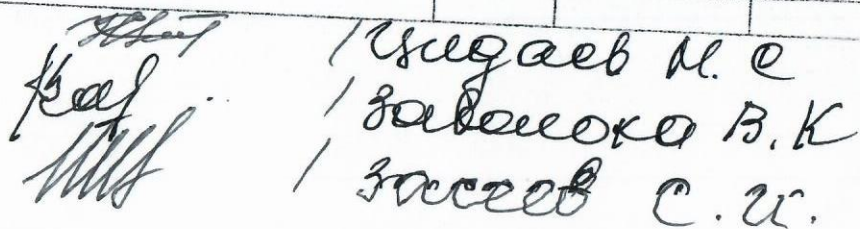 / Цидаев М. С
/ Заволока В. К
/ Зассеев С. И.